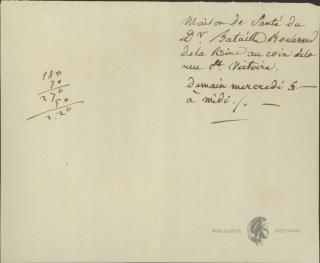 Maison de Santé du
Dr. Bataille Boulevard
de la Reine au coin de la
rue Ste. Victoire.
Demain mercredi 5
à midi
180
70
270
50
2.20